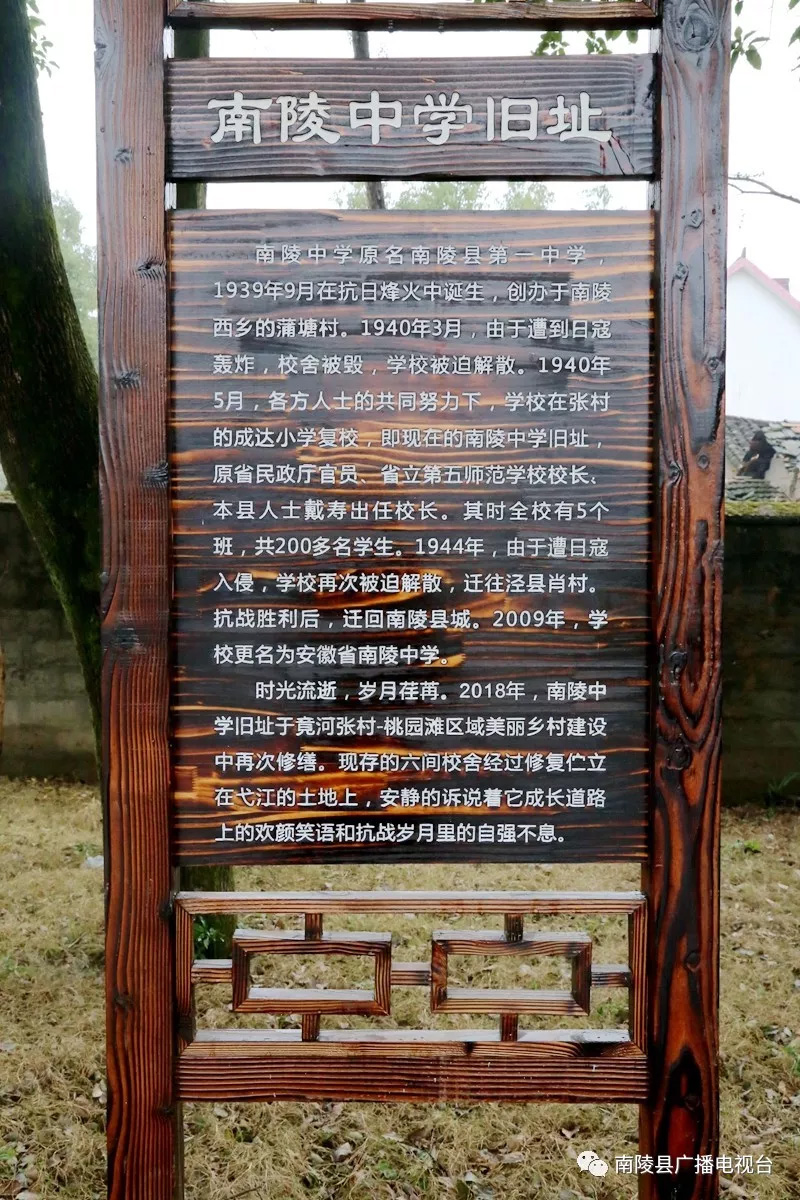 南陵中学旧址
南陵中学原名南陵县第一中学，
1939年9月在抗日烽火中诞生，创办于南陵
西乡的蒲塘村。1940年3月，由于遭到日寇
轰炸，校舍被毁，学校被迫解散。1940年
5月，各方人士的共同努力下，学校在张村
的成达小学复校，即现在的南陵中学旧址，
原省民政厅官员、省立第五师范学校校长、
本县人士戴寿出任校长。其时全校有5个
班，共200多名学生。1944年，由于遭日寇
入侵，学校再次被迫解散，迁往泾县肖村。
抗战胜利后，迁回南陵县城。2009年，学
校更名为安徽省南陵中学。
时光流逝，岁月荏苒。2018年，南陵中
学旧址于竟河张村-桃园滩区域美丽乡村建设
中再次修缮。现存的六间校舍经过修复伫立
在弋江的土地上，安静的诉说着它成长道路
上的欢颜笑语和抗战岁月里的自强不息。
南陵县广播电视台